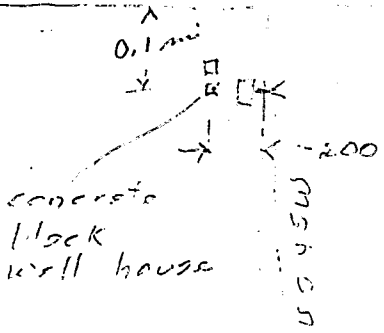 0.1 mi
200
concrete
block
well house
US 45W